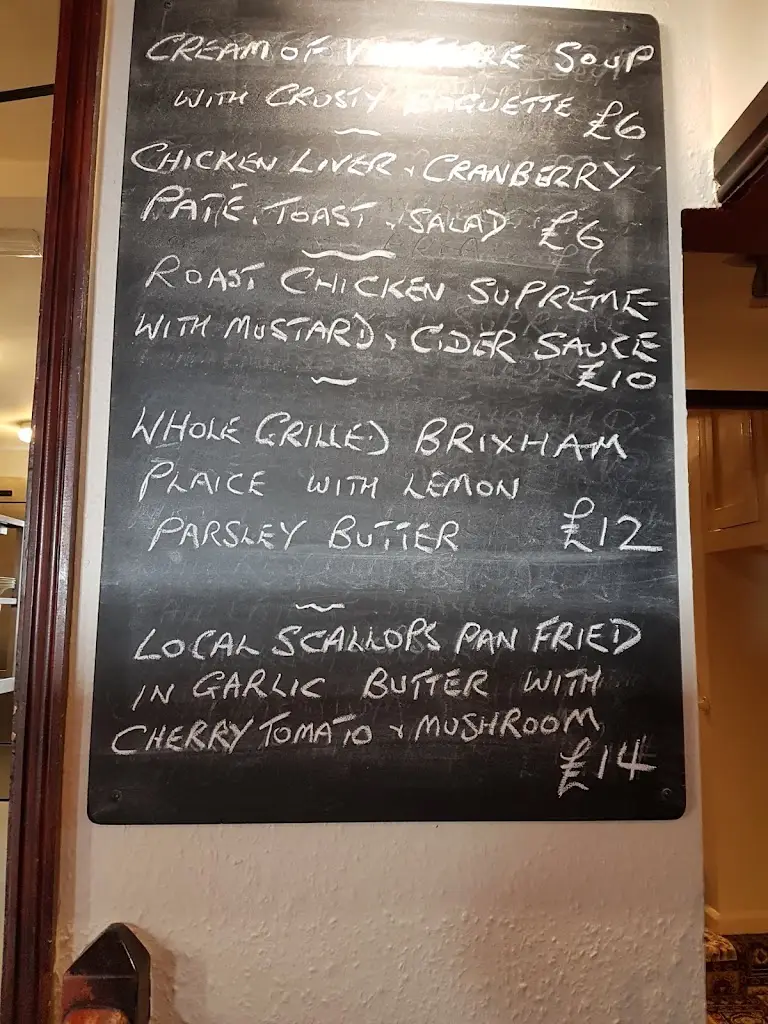 CREAM OF SOUP
WITH CRUSTY BAGUETTE £6
CHICKEN LIVER & CRANBERRY
PATÉ, TOAST & SALAD £6
ROAST CHICKEN SUPRÉME
WITH MUSTARD & CIDER SAUCE
£10
WHOLE GRILLED BRIXHAM
PLAICE WITH LEMON
PARSLEY BUTTER £12
LOCAL SCALLOPS PAN FRIED
IN GARLIC BUTTER WITH
CHERRY TOMATO & MUSHROOM
£14